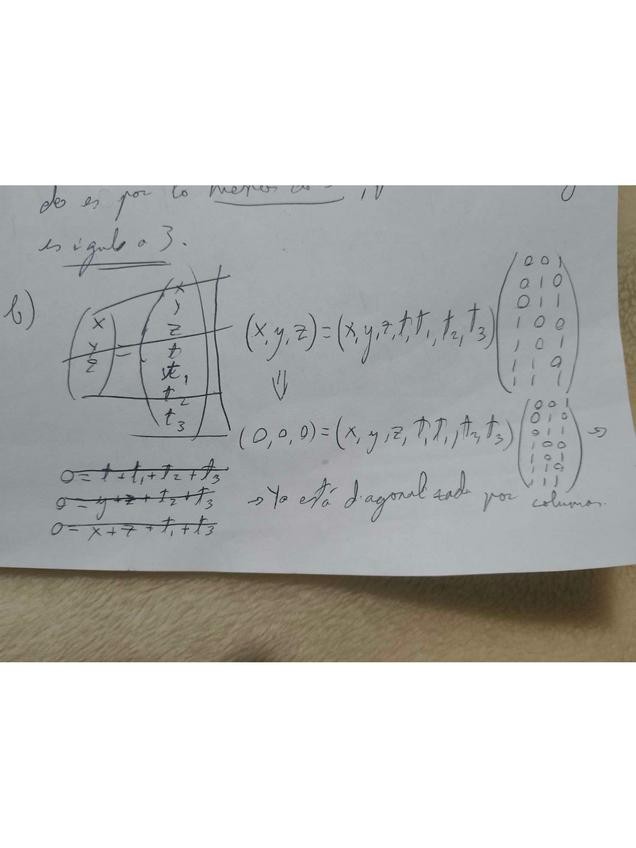 do es por lo menos
es igual a 3.
b)
(x y z) = (x y z t t₁ t₂ t₃)
(x, y, z) = (x, y, z, t, t₁, t₂, t₃) (0 0 1
0 1 0
0 1 1
1 0 0
1 0 1
1 1 0
1 1 1)
⇓
(0, 0, 0) = (x, y, z, t, t₁, t₂, t₃) (0 0 1
0 1 0
0 1 1
1 0 0
1 0 1
1 1 0
1 1 1) →
0 = t + t₁ + t₂ + t₃
0 = y + z + t₂ + t₃
0 = x + z + t₁ + t₃
→ Ya está diagonalizada por columnas.